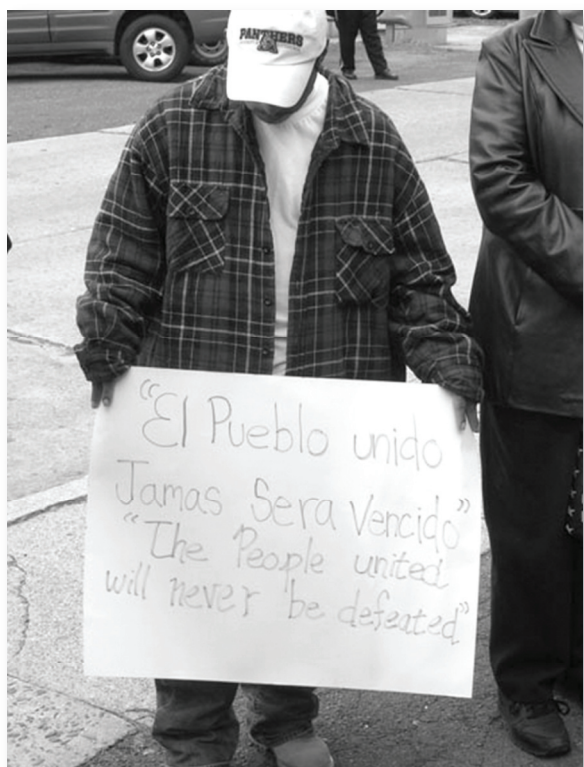 PANTHERS
"El Pueblo unido
Jamas Sera Vencido"
"The People united
will never be defeated"